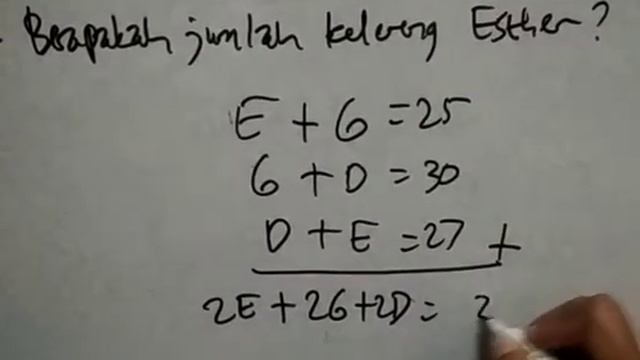 Berapakah jumlah kelereng Esther?
E + G = 25
G + D = 30
D + E = 27 +
2E + 2G + 2D = 2